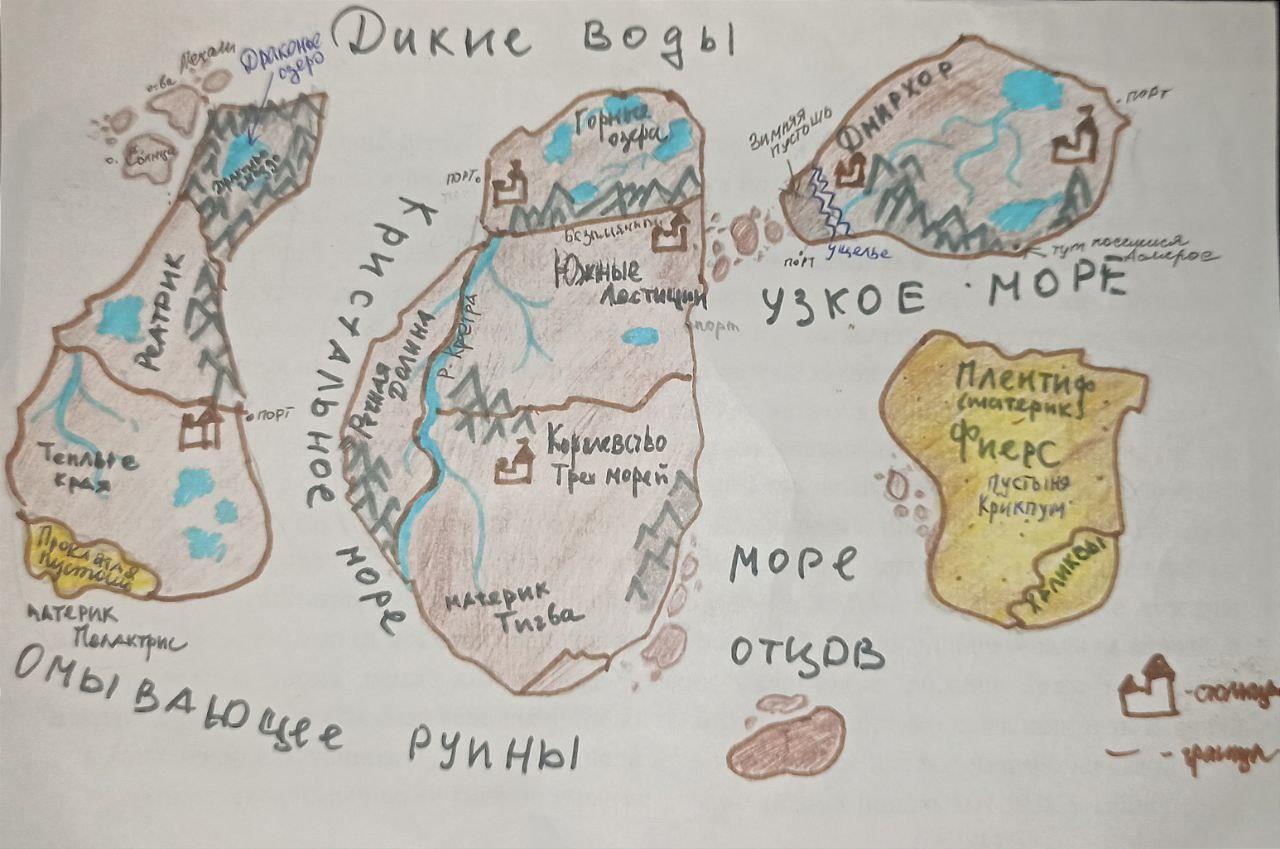 Дикие воды
о-ва Мехали
Драконье
озеро
о. Солнца
Релтрик
порт
Теплые
края
Проклятая
пустошь
материк
Пелактрис
Омывающее руины
Кристальное море
Горные
озера
порт.
Безымянный
Южные
Лестиции
порт
р. Кретра
Речная
Долина
Королевство
Трех морей
материк
Тигва
Зимняя
пустошь
Днирхор
порт
порт
ущелье
тут поселился
Узкое море
Плентиф
(материк)
Фиерс
пустыня
Крикпум
Халиковы
море
отцов
-столица
- границы